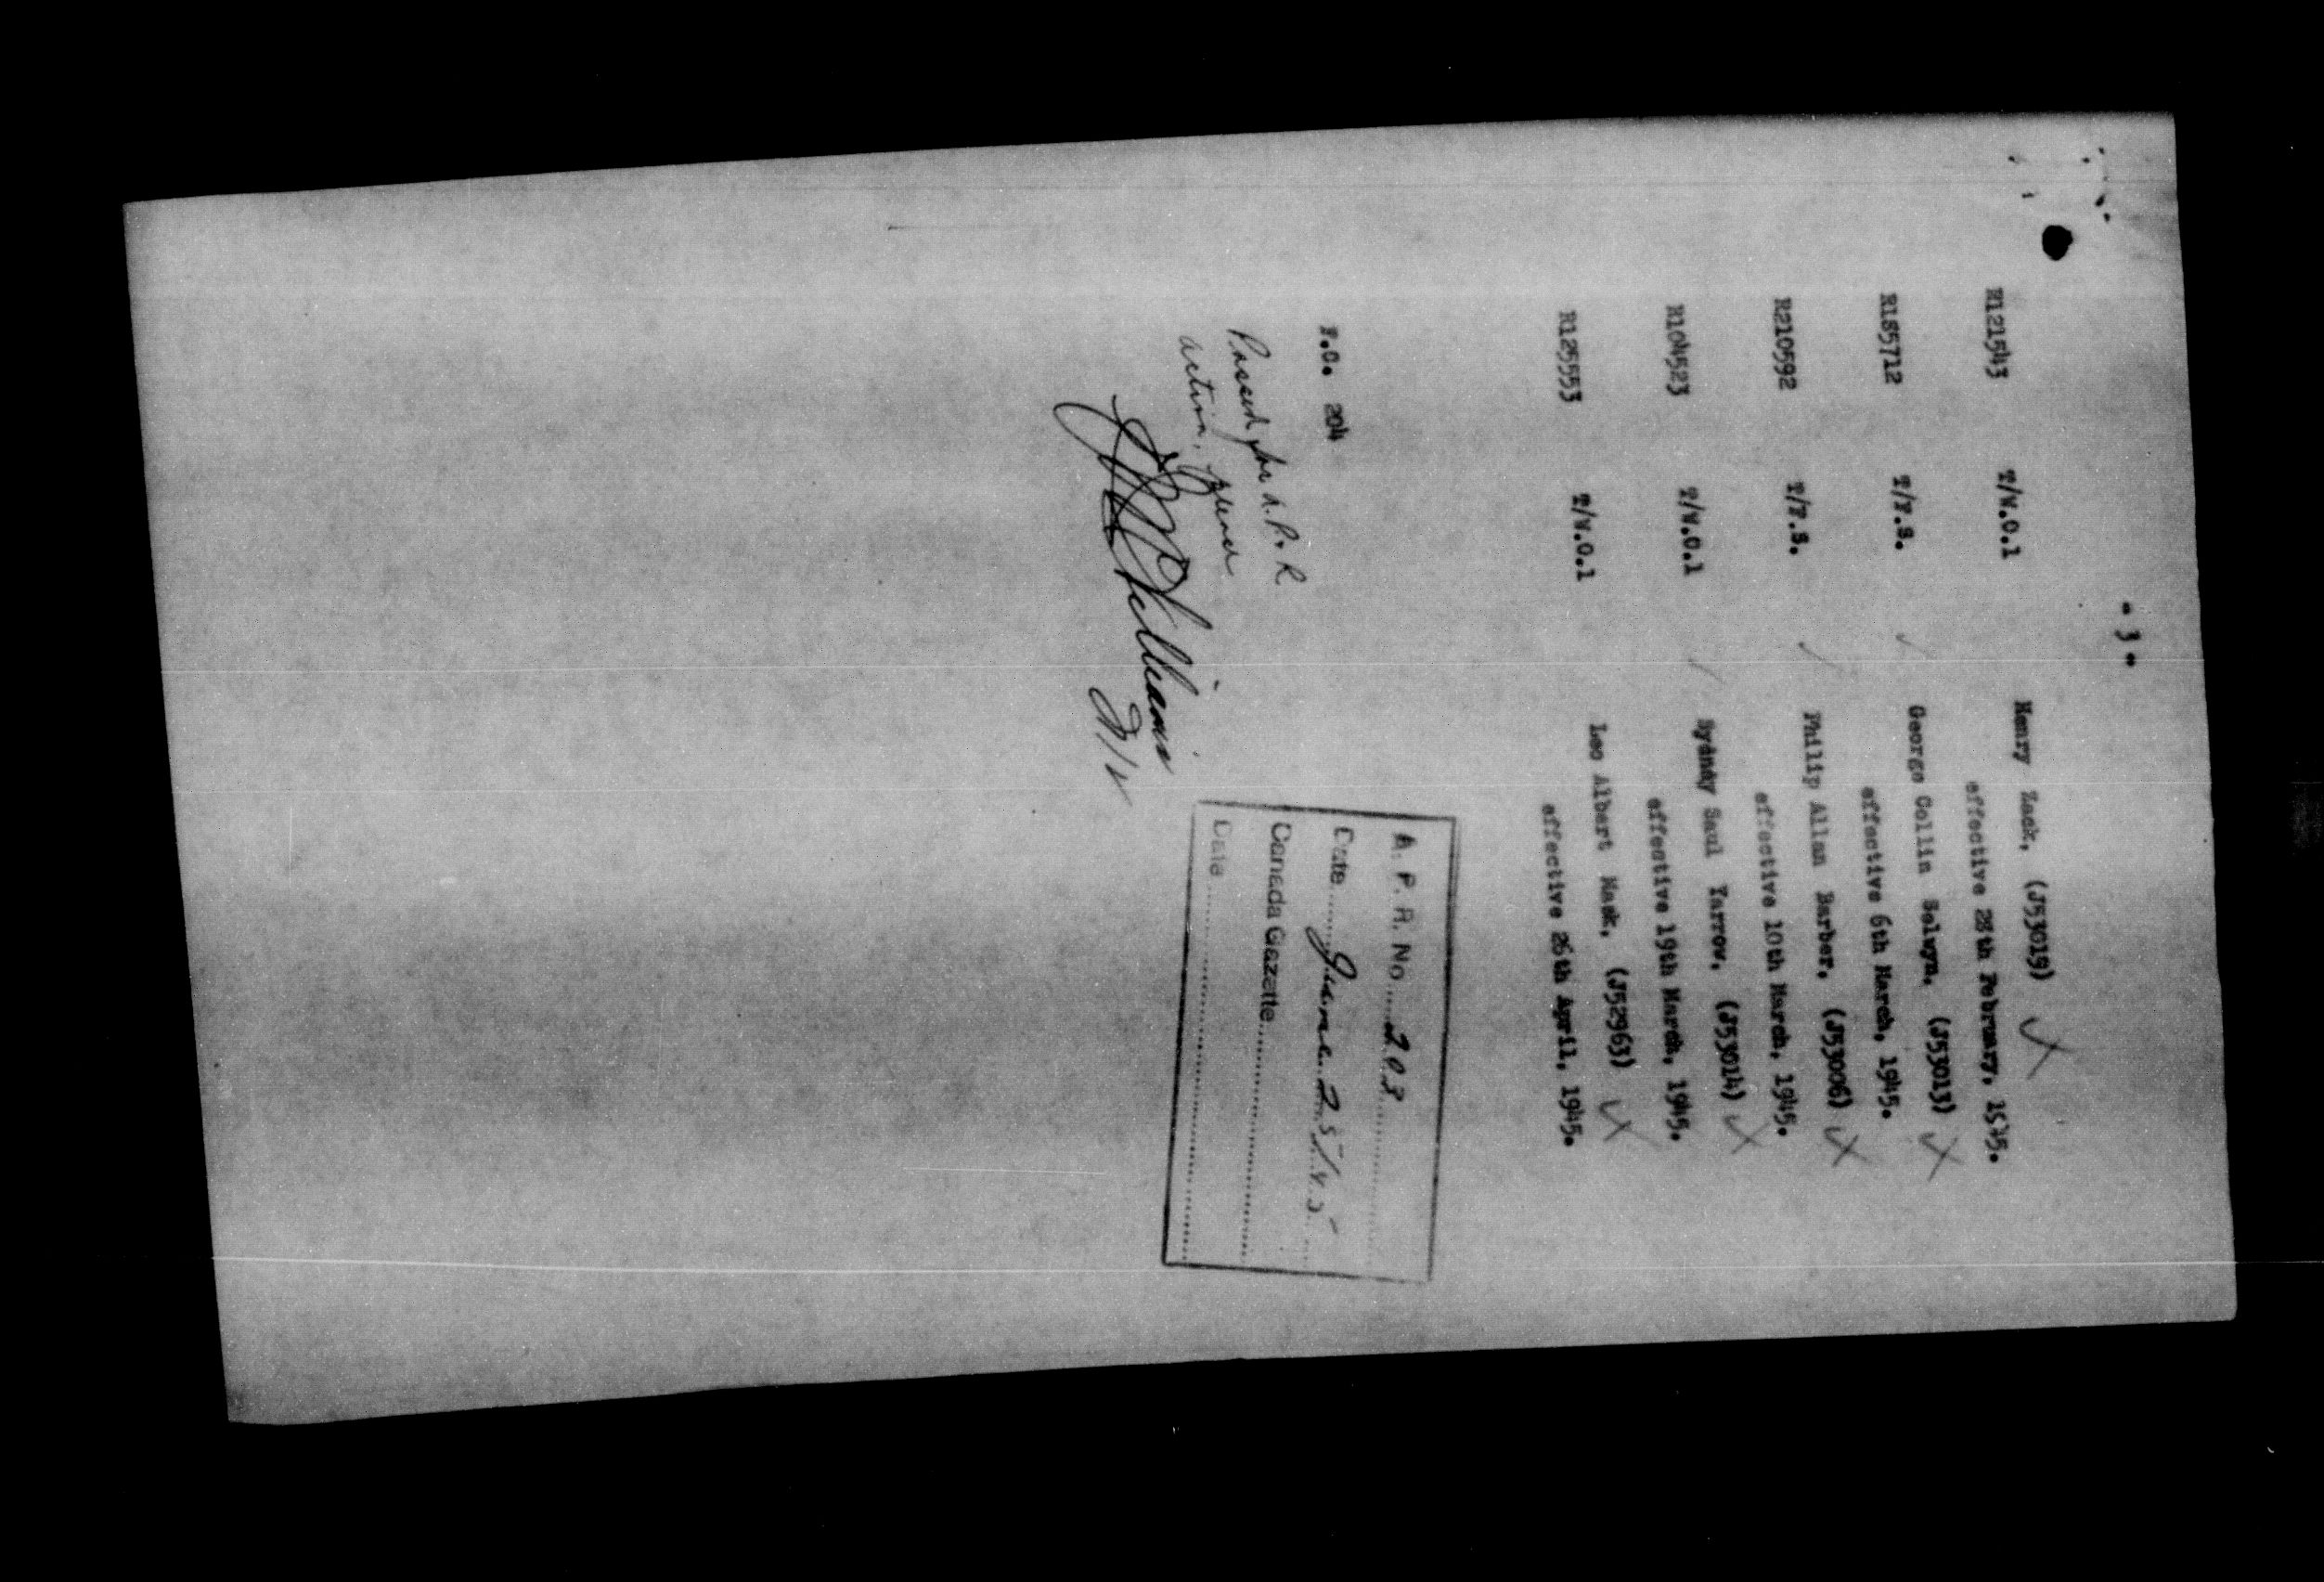 - 3 -
R121543 T/W.O.1 Henry Zack, (J53019)
effective 28th February, 1945.
R185712 T/F.S. George Collin Selwyn, (J53013)
effective 6th March, 1945.
R210592 T/F.S. Philip Allan Barber, (J53006)
effective 10th March, 1945.
R104523 T/W.O.1 Sydney Saul Yarrow, (J53014)
effective 19th March, 1945.
R125553 T/W.O.1 Leo Albert Mack, (J52963)
effective 26th April, 1945.
F.C. 204
Passed for A.P.R
action, please
A. P. R. No. 203
Date June 25/45
Canada Gazette
Date